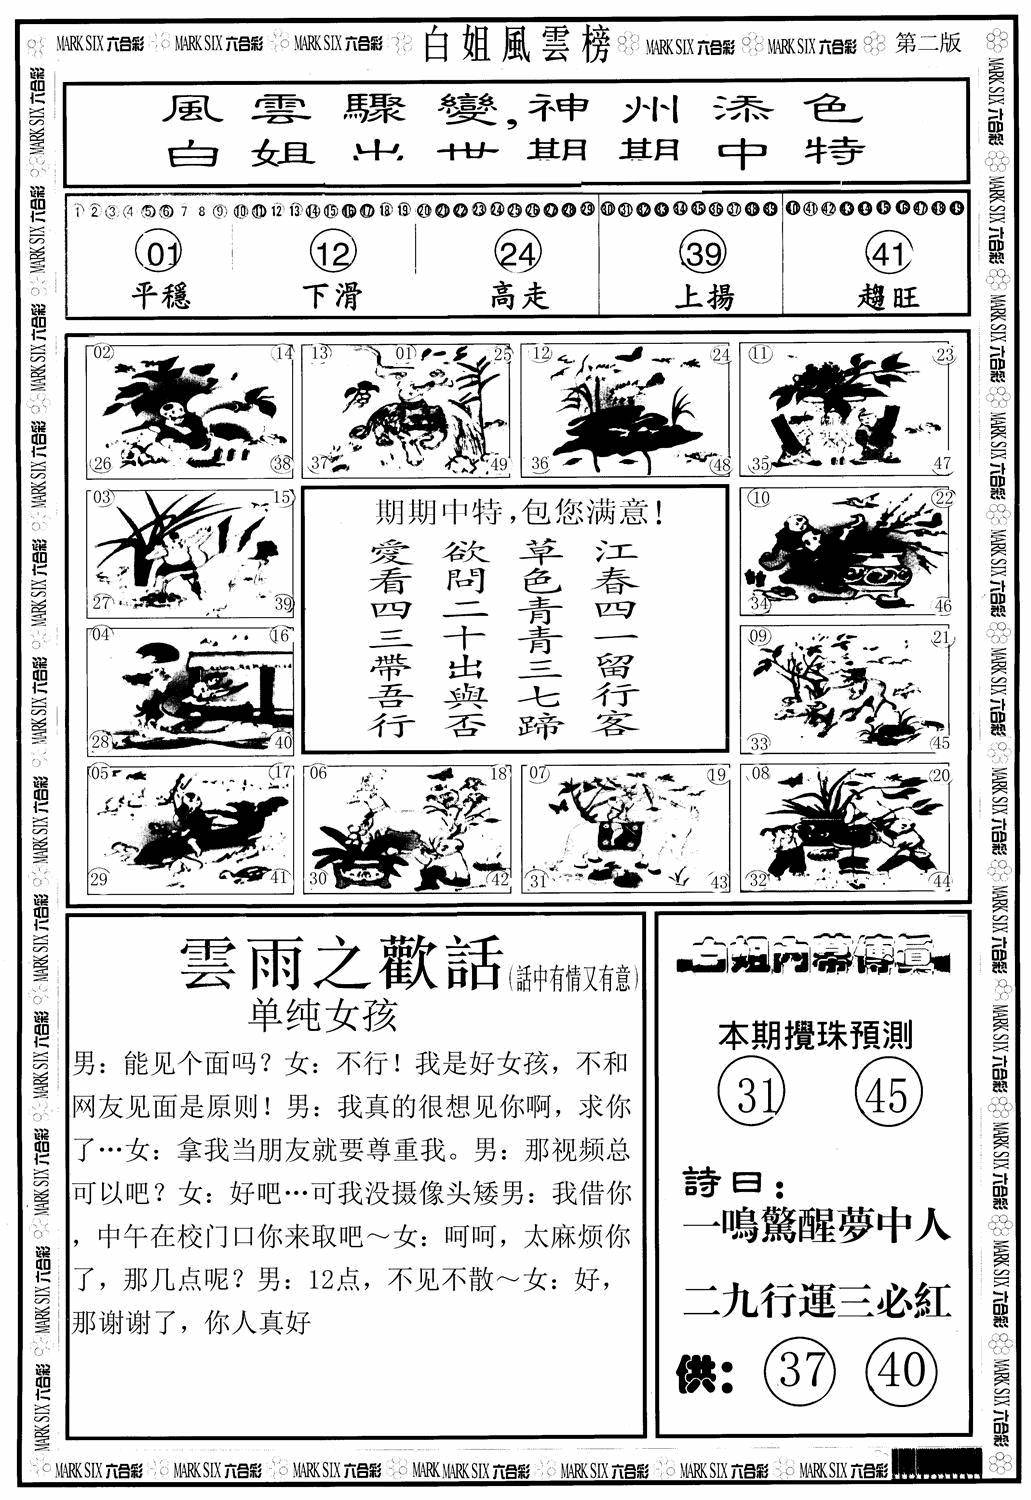 MARK SIX 六合彩 MARK SIX 六合彩 MARK SIX 六合彩 白姐風雲榜 MARK SIX 六合彩 MARK SIX 六合彩 第二版
風雲驟變,神州添色
白姐出世期期中特
1 2 3 4 5 6 7 8 9 10 11 12 13 14 15 16 17 18 19 20 21 22 23 24 25 26 27 28 29 30 31 32 33 34 35 36 37 38 39 40 41 42 43 44 45 46 47 48 49
01 12 24 39 41
平穩 下滑 高走 上揚 趨旺
02 14 13 01 25 12 24 11 23
26 38 37 49 36 48 35 47
03 15 10 22
27 39 34 46
04 16 09 21
28 40 33 45
05 17 06 18 07 19 08 20
29 41 30 42 31 43 32 44
期期中特,包您满意!
江春四一留行客
草色青青三七蹄
欲問二十出與否
愛看四三帶吾行
雲雨之歡話(話中有情又有意)
单纯女孩
男：能见个面吗？女：不行！我是好女孩，不和
网友见面是原则！男：我真的很想见你啊，求你
了…女：拿我当朋友就要尊重我。男：那视频总
可以吧？女：好吧…可我没摄像头矮男：我借你
，中午在校门口你来取吧～女：呵呵，太麻烦你
了，那几点呢？男：12点，不见不散～女：好，
那谢谢了，你人真好
白姐内幕傳真
本期攪珠預測
31 45
詩曰：
一鳴驚醒夢中人
二九行運三必紅
供： 37 40
MARK SIX 六合彩 MARK SIX 六合彩 MARK SIX 六合彩 MARK MARK SIX 六合彩 MARK SIX 六合彩 MARK SIX 六合彩 MARK SIX 六合彩